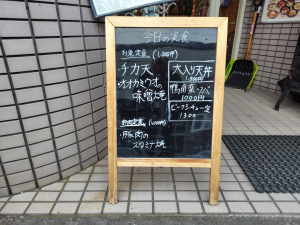 今日の定食
お魚定食 (1,000円)
・チカ天
・オオカミウオの
味噌焼
お肉定食 (1,000円)
・豚肉の
スタミナ焼
大入り天丼
1,500円
1000円
ビーフシチュー定
1300